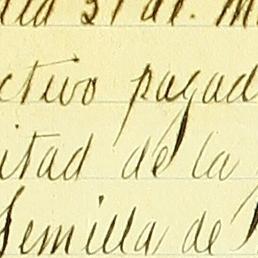 31 de
ctivo pagad
itad de la
Semilla de